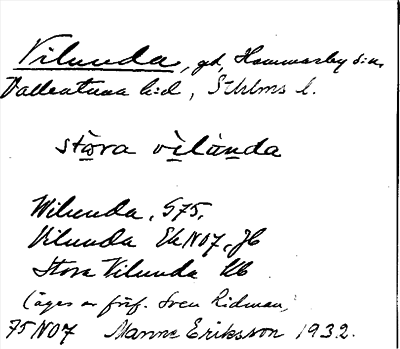 Vilunda, gd, Hammarby s:n,
Vallentuna h:d, Sthlms l.
stora vilunda
Wilunda, G75,
Vilunda Ek NO7, Jb
Stora Vilunda
(äges av prof. Sven Ridman,
75 NO7 Manne Eriksson 1932.